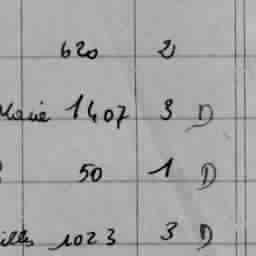 620 2
Marie 1407 3 D
50 1 D
illes 1023 3 D